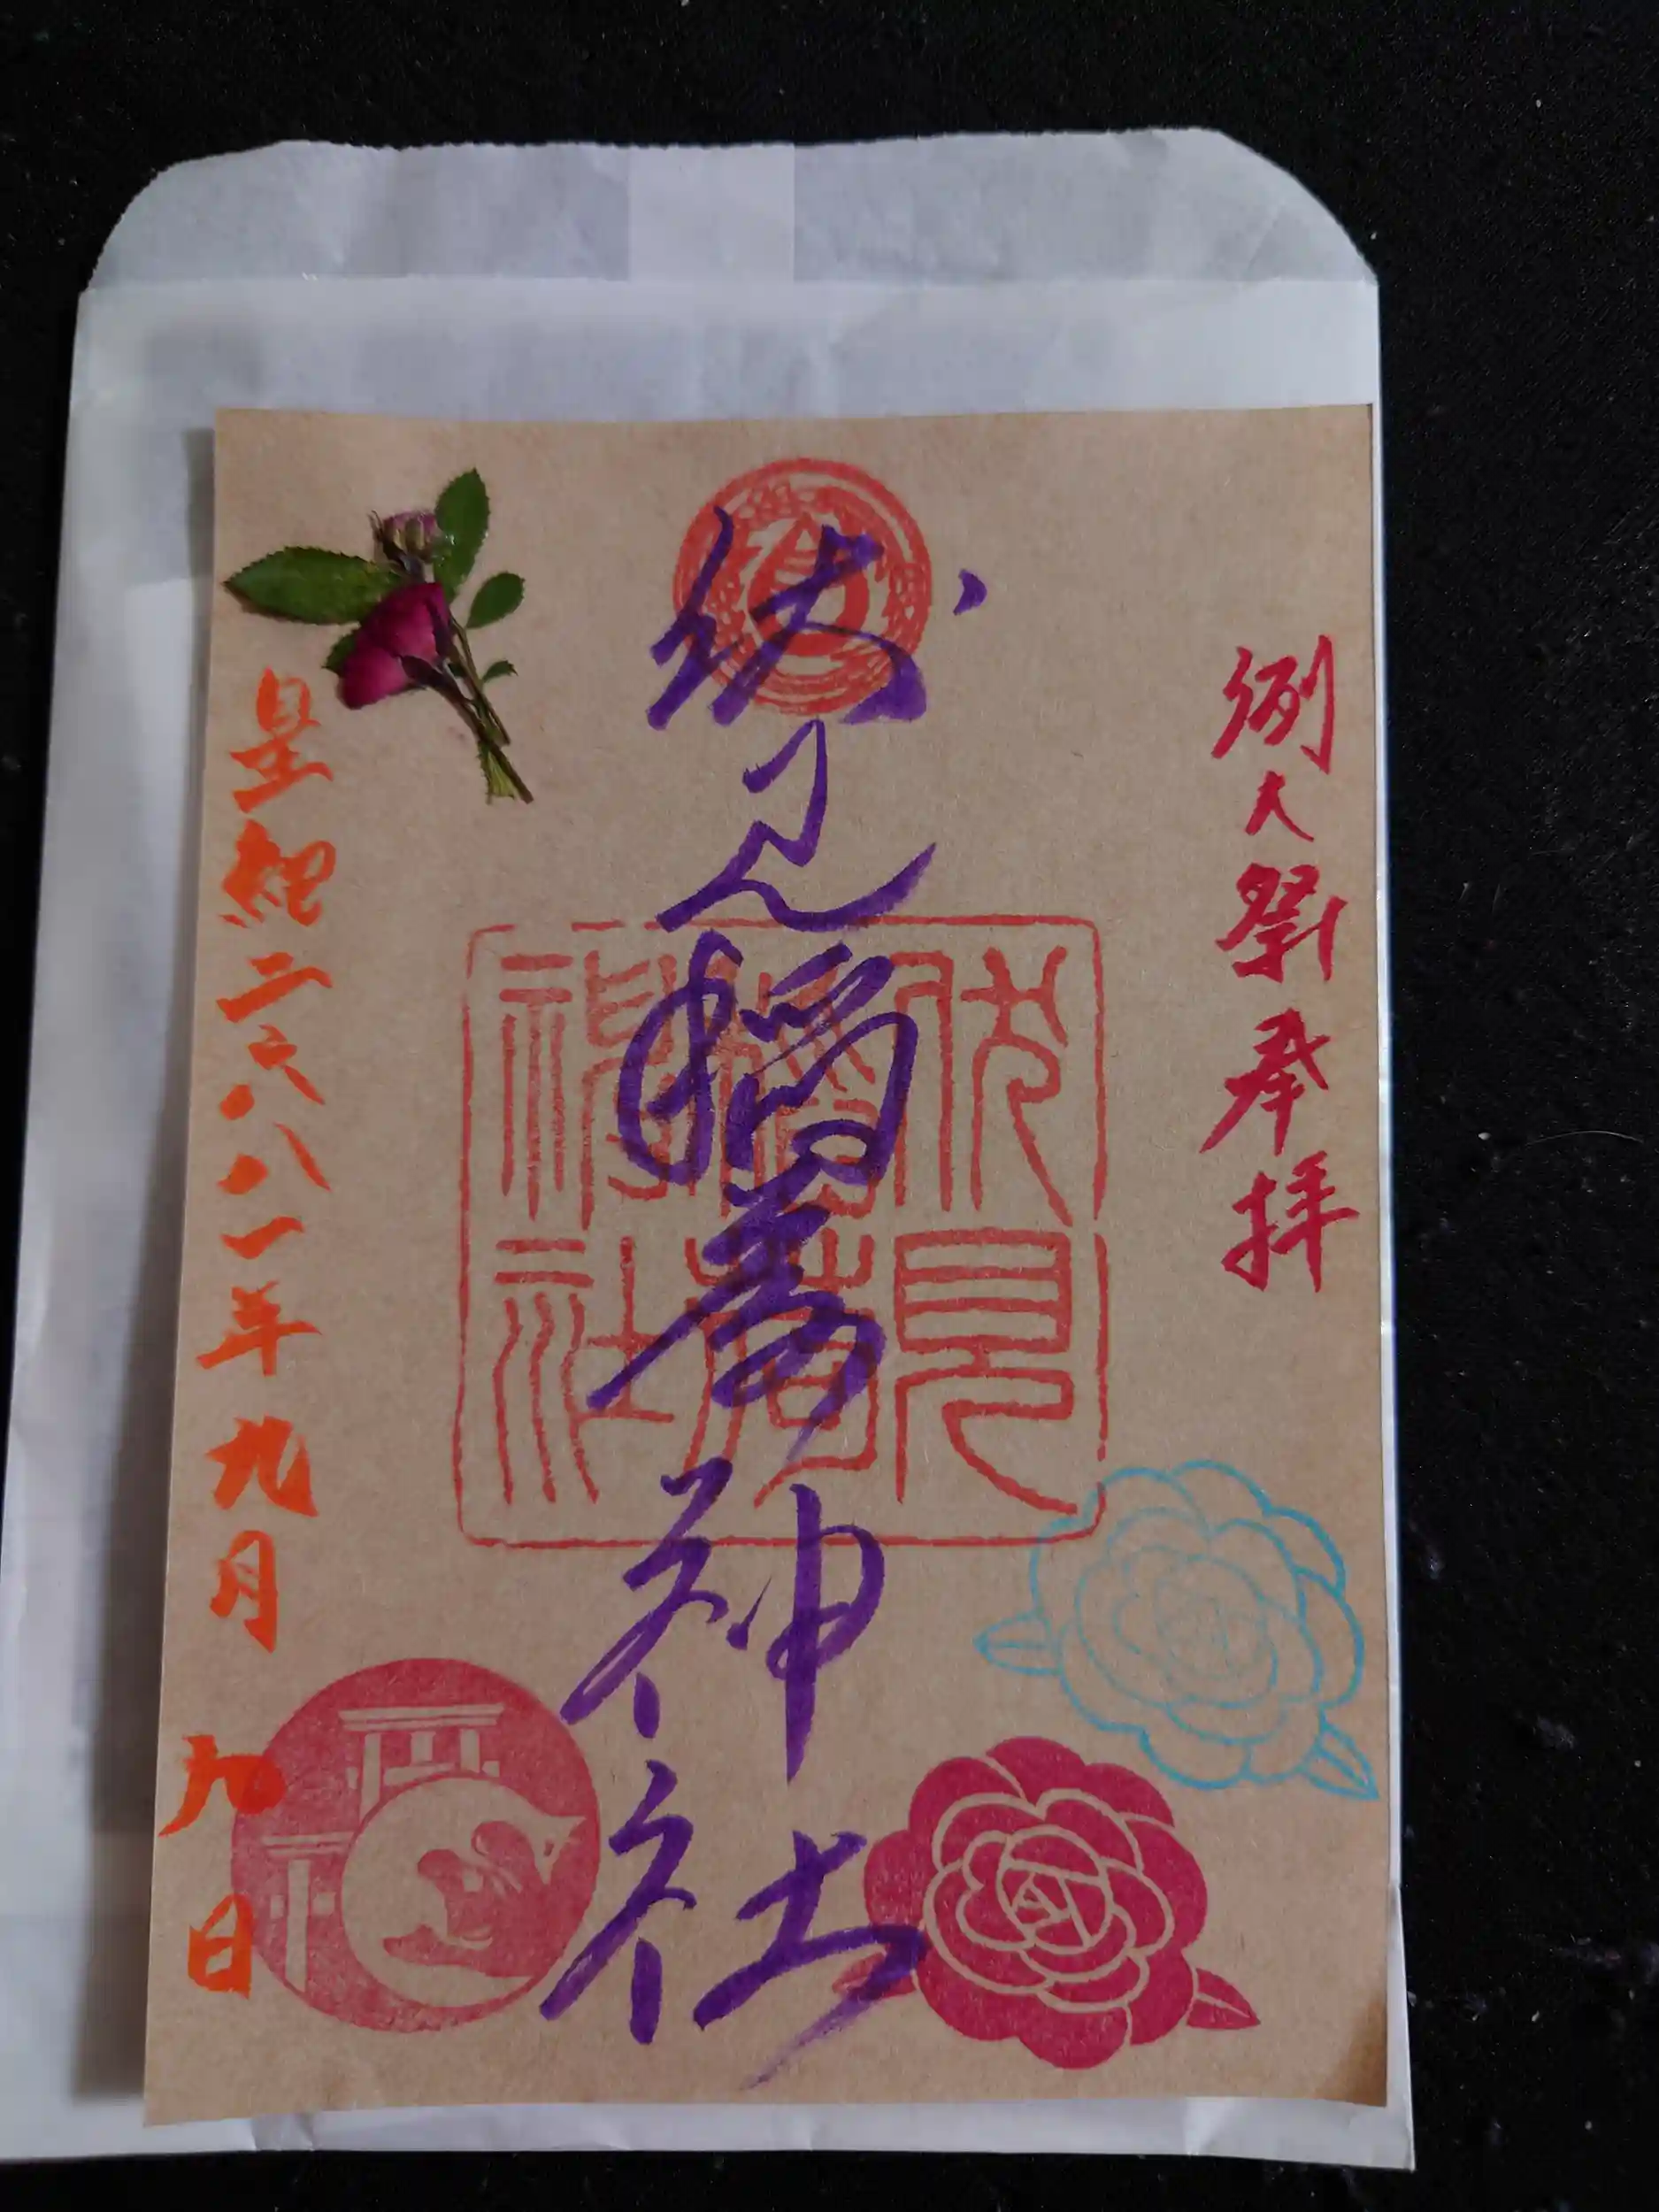 例大祭奉拝
伏見稲荷神社
伏見
稲荷
神社
皇紀二六八一年九月
九日